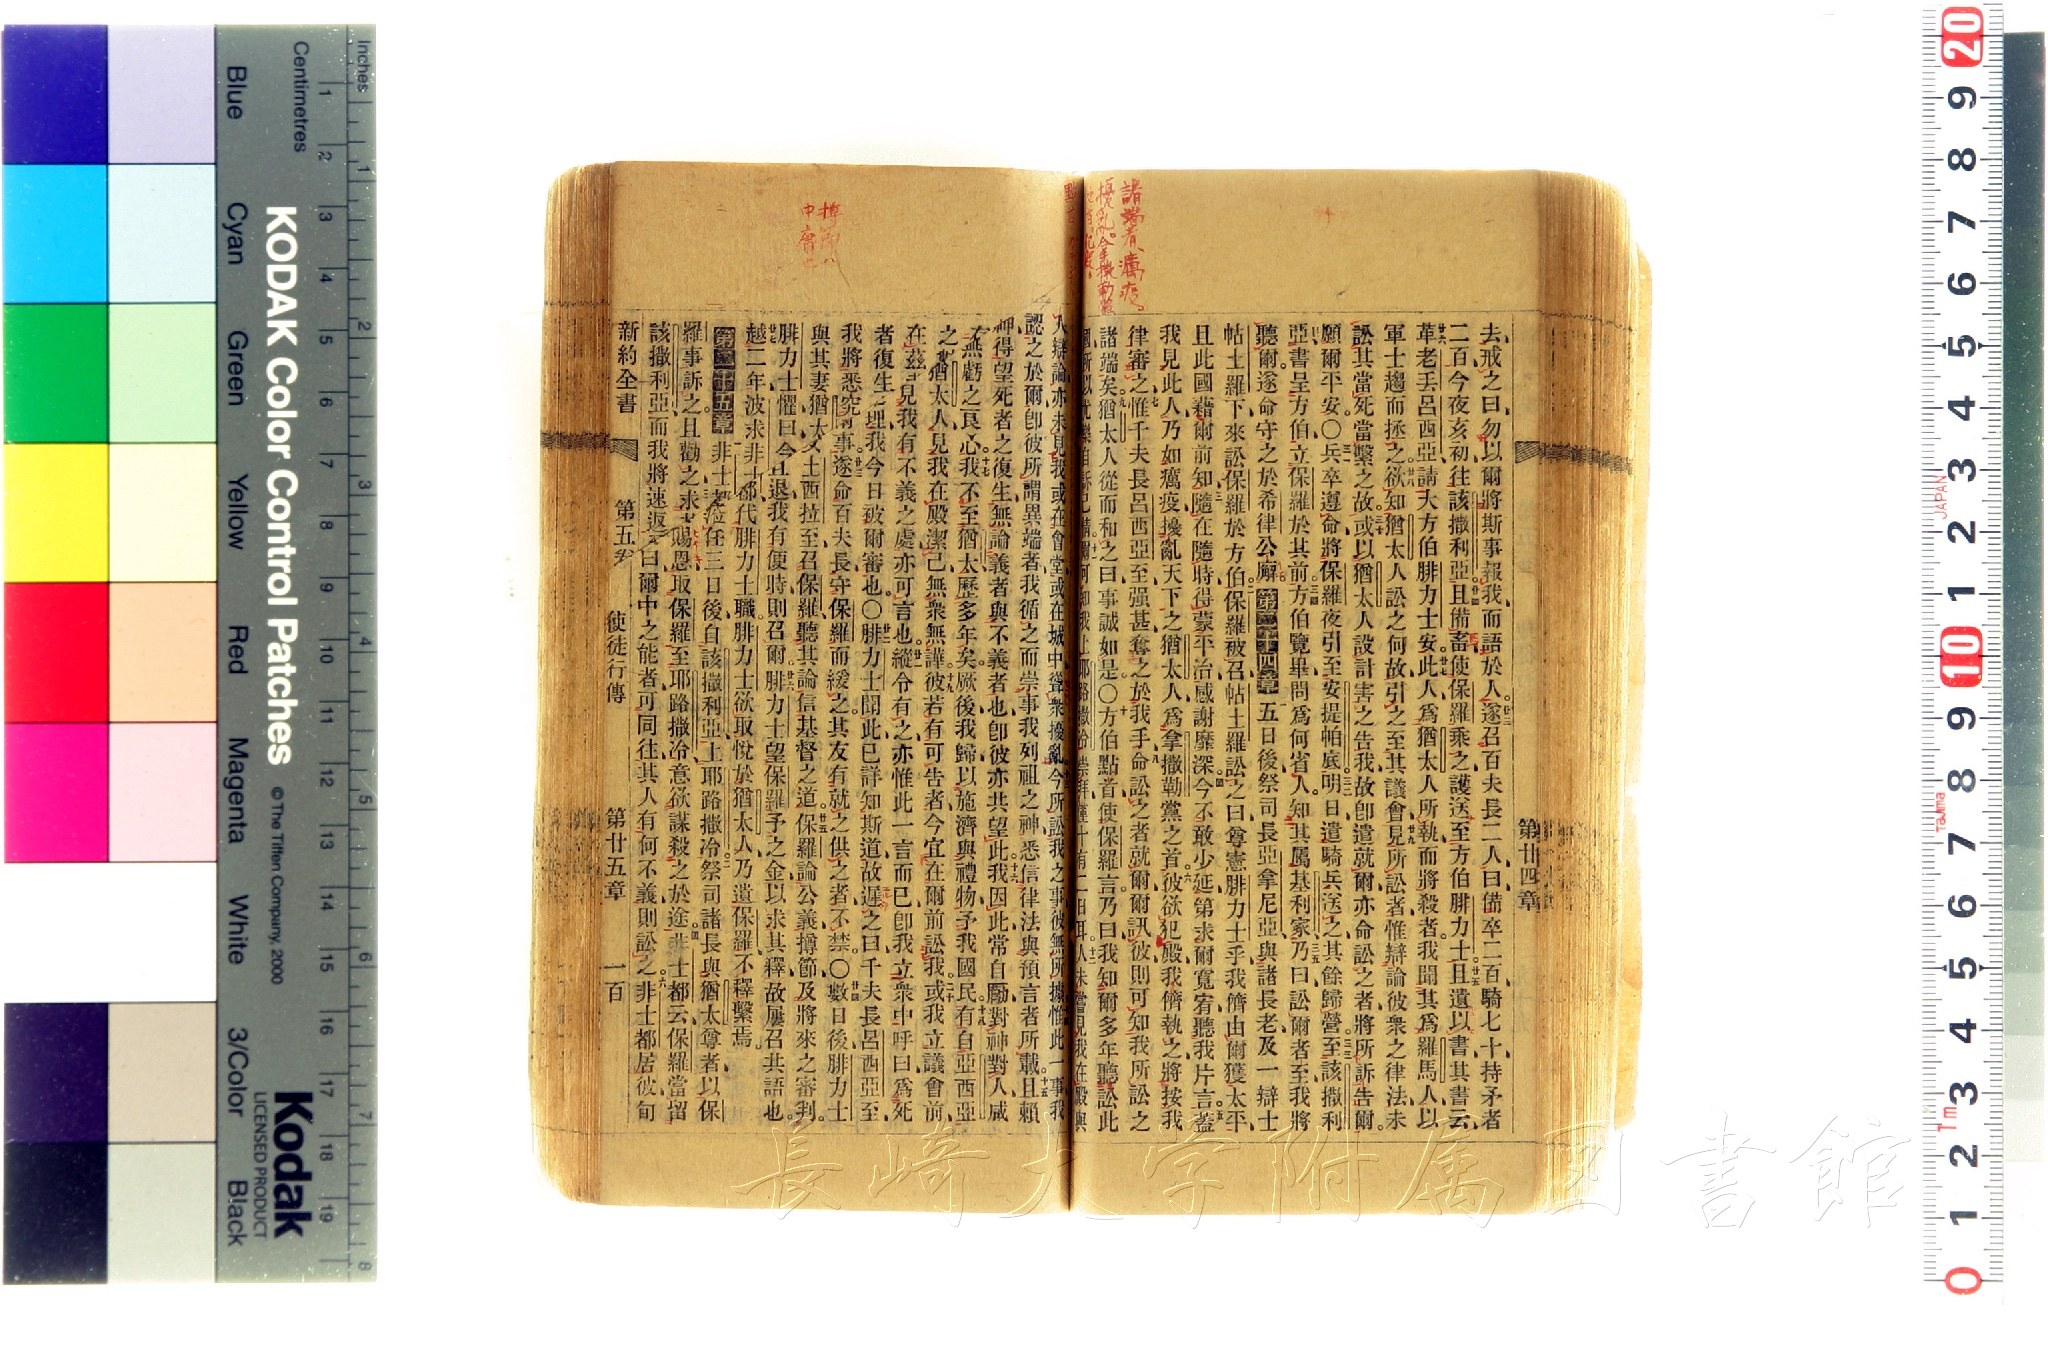 去戒之曰勿以爾將斯事報我而語於人遂召百夫長二人曰備卒二百騎七十持矛者
二百今夜亥初往該撒利亞且備畜使保羅乘之護送至方伯腓力士且遺以書其書云
革老丟呂西亞請大方伯腓力士安此人爲猶太人所執而將殺者我聞其爲羅馬人以
軍士趨而拯之欲知猶太人訟之何故引之至其議會見所訟者惟辯論彼衆之律法未
訟其當死當繫之故或以猶太人設計害之告我故卽遣就爾亦命訟之者將所訴告爾
願爾平安〇兵卒遵命將保羅夜引至安提帕底明日遣騎兵送之其餘歸營至該撒利
亞書呈方伯立保羅於其前方伯覽畢問爲何省人知其屬基利家乃曰訟爾者至我將
聽爾遂命守之於希律公廨 第二十四章 五日後祭司長亞拿尼亞與諸長老及一辯士
帖土羅下來訟保羅於方伯保羅被召帖土羅訟之曰尊憲腓力士乎我儕由爾獲太平
且此國藉爾前知隨在隨時得蒙平治感謝靡深今不敢少延第求爾寬宥聽我片言蓋
我見此人乃如癘疫擾亂天下之猶太人爲拿撒勒黨之首彼欲犯殿我儕執之將按我
律審之惟千夫長呂西亞至强甚奪之於我手命訟之者就爾爾訊彼則可知我所訟之
諸端矣猶太人從而和之曰事誠如是〇方伯點首使保羅言乃曰我知爾多年聽訟此
人辯論亦未見我或在會堂或在城中聳衆擾亂今所訟我之事彼無所據惟此一事我
認之於爾卽彼所謂異端者我循之而崇事我列祖之神悉信律法與預言者所載且賴
神得望死者之復生無論義者與不義者也卽彼亦共望此我因此常自勵對神對人咸
無虧之良心我不至猶太歷多年矣厥後我歸以施濟與禮物予我國民有自亞西亞
之猶太人見我在殿潔己無衆無譁彼若有可告者今宜在爾前訟我或我立議會前
在茲見我有不義之處亦可言也縱令有之亦惟此一言而已卽我立衆中呼曰爲死
者復生之理我今日被爾審也〇腓力士聞此已詳知斯道故遲之曰千夫長呂西亞至
我將悉究爾事遂命百夫長守保羅而緩之其友有就之供之者不禁〇數日後腓力士
與其妻猶太女士西拉至召保羅聽其論信基督之道保羅論公義撙節及將來之審判
腓力士懼曰今且退我有便時則召爾腓力士望保羅予之金以求其釋故屢召共語也
越二年波求非士都代腓力士職腓力士欲取悅於猶太人乃遺保羅不釋繫焉
第二十五章 非士都蒞任三日後自該撒利亞上耶路撒冷祭司諸長與猶太尊者以保
羅事訴之且勸之求其賜恩取保羅至耶路撒冷意欲謀殺之於途非士都云保羅當留
該撒利亞而我將速返又曰爾中之能者可同往其人有何不義則訟之非士都居彼旬
新約全書 第五 使徒行傳 第廿五章 一百
第廿四章
諸端者、癘疫、
KODAK Color Control Patches
© The Tiffen Company, 2000
Kodak
LICENSED PRODUCT
Inches
Centimetres
Blue Cyan Green Yellow Red Magenta White 3/Color Black
1 2 3 4 5 6 7 8
1 2 3 4 5 6 7 8 9 10 11 12 13 14 15 16 17 18 19
20 9 8 7 6 5 4 3 2 1 10 9 8 7 6 5 4 3 2 1 0
JAPAN
Tajima
Tm
長崎大学附属図書館